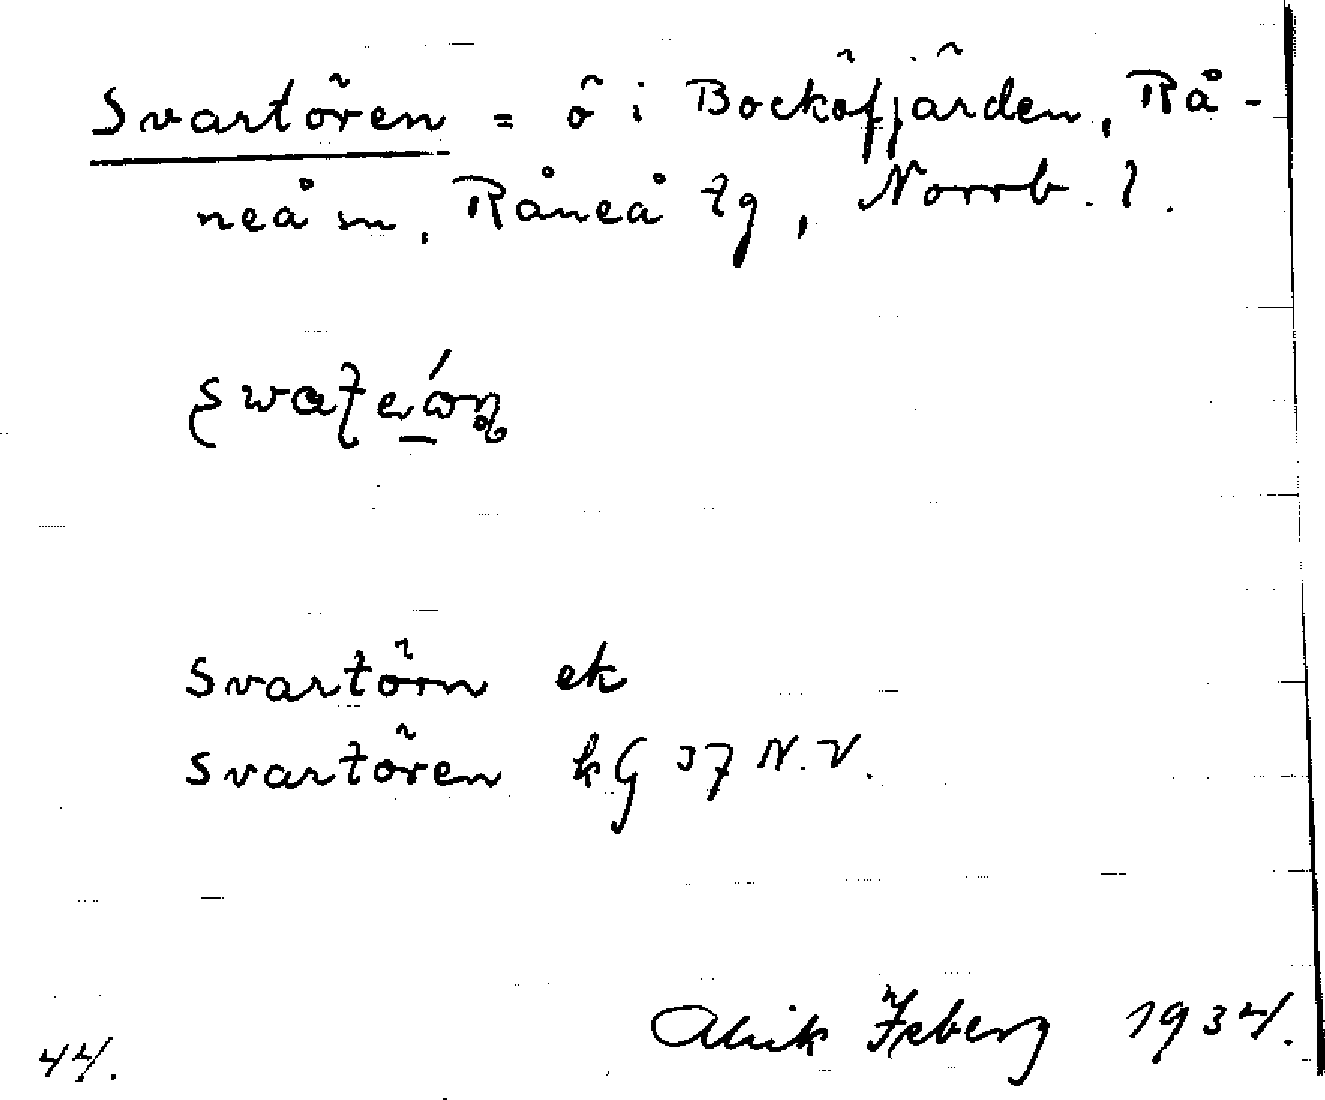 Svartören = ö i Bocköfjärden, Rå-
neå sn, Råneå tg, Norrb. l.
Svartörn ek
Svartören kG 37 N.V.
44. Alrik Isberg 1934.